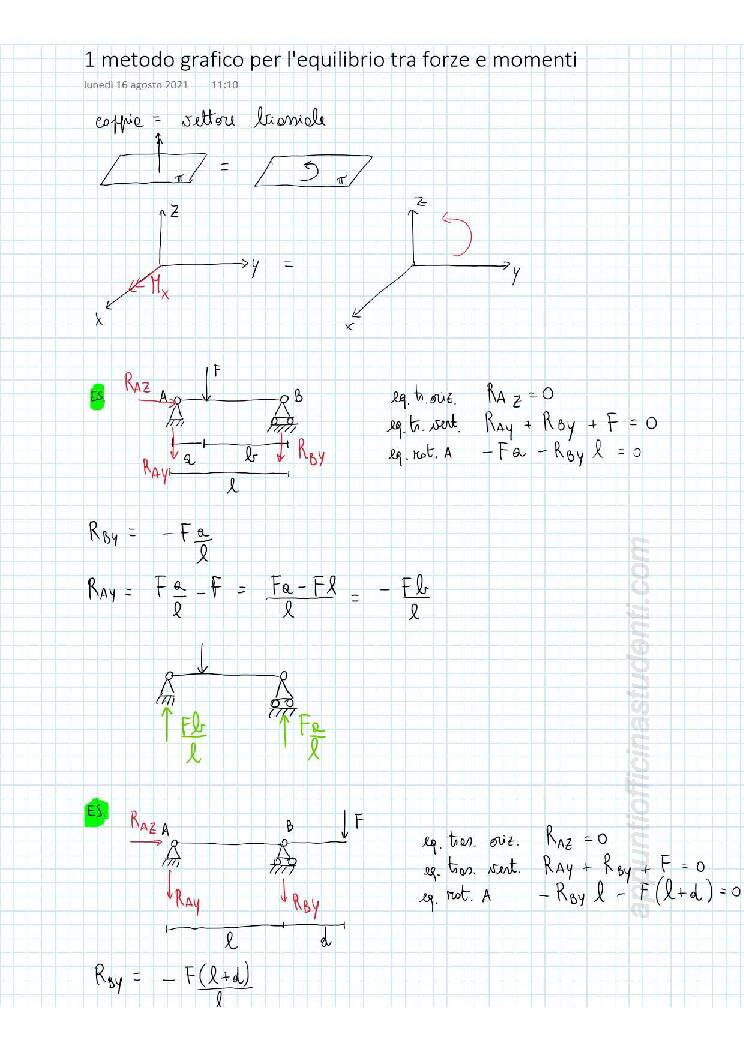 1 metodo grafico per l'equilibrio tra forze e momenti
lunedì 16 agosto 2021 11:10
coppia = vettore biassiale
π = π
z z
y = y
M_x
x x
ES. R_AZ A F B
eq. tr. oriz. R_AZ = 0
eq. tr. vert. R_AY + R_BY + F = 0
eq. rot. A -Fa - R_BY l = 0
R_AY a b R_BY
l
R_BY = -F a/l
R_AY = F a/l - F = (Fa - Fl)/l = - Fb/l
Fb/l F a/l
ES. R_AZ A B F
eq. tras. oriz. R_AZ = 0
eq. tras. vert. R_AY + R_BY + F = 0
eq. rot. A - R_BY l - F(l+d) = 0
R_AY R_BY
l d
R_BY = - F(l+d)/l
appuntiofficinastudenti.com